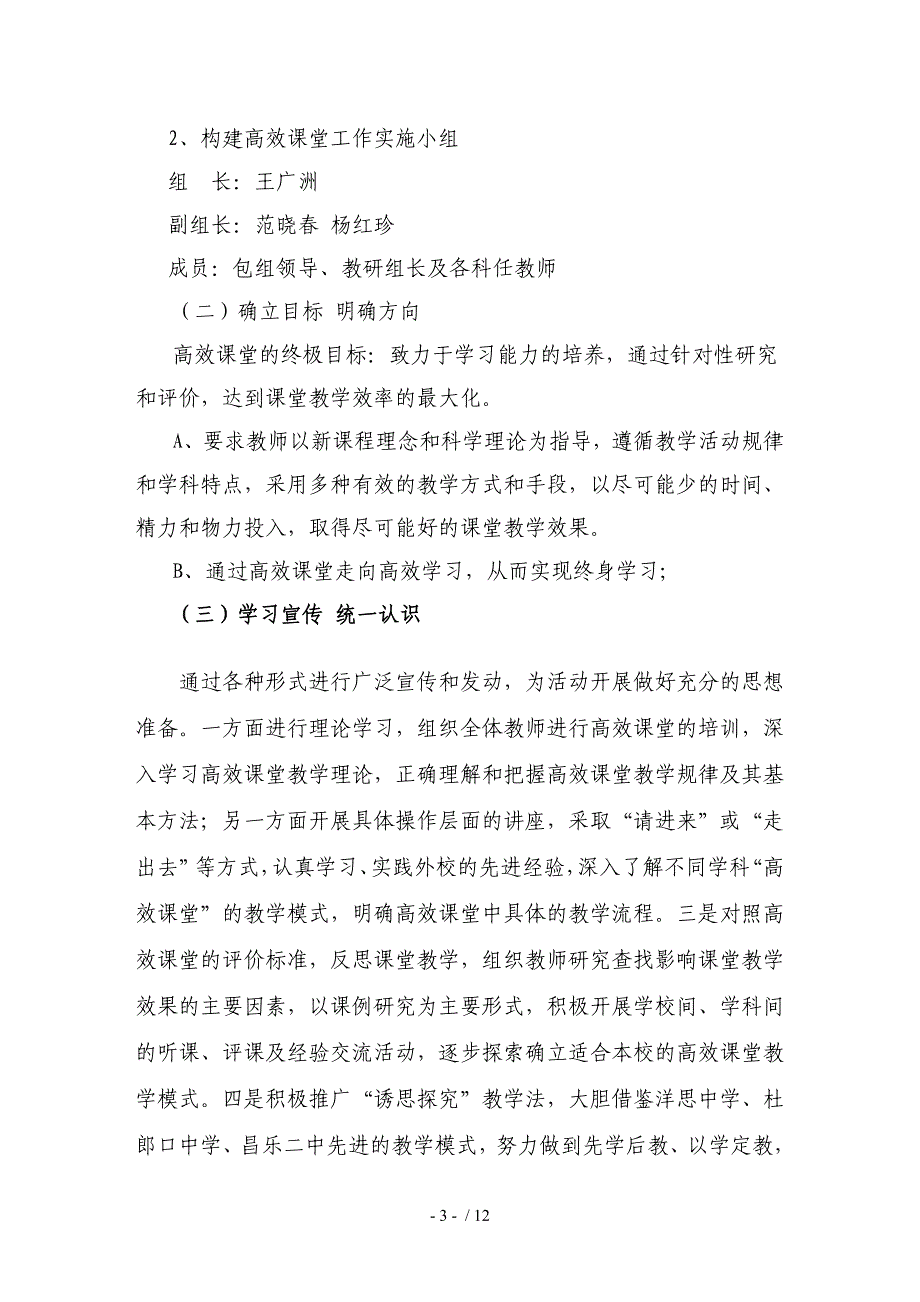 2、构建高效课堂工作实施小组
组　长：王广洲
副组长：范晓春 杨红珍
成员：包组领导、教研组长及各科任教师
（二）确立目标 明确方向
高效课堂的终极目标：致力于学习能力的培养，通过针对性研究
和评价，达到课堂教学效率的最大化。
A、要求教师以新课程理念和科学理论为指导，遵循教学活动规律
和学科特点，采用多种有效的教学方式和手段，以尽可能少的时间、
精力和物力投入，取得尽可能好的课堂教学效果。
B、通过高效课堂走向高效学习，从而实现终身学习；
（三）学习宣传 统一认识
通过各种形式进行广泛宣传和发动，为活动开展做好充分的思想
准备。一方面进行理论学习，组织全体教师进行高效课堂的培训，深
入学习高效课堂教学理论，正确理解和把握高效课堂教学规律及其基
本方法；另一方面开展具体操作层面的讲座，采取“请进来”或“走
出去”等方式，认真学习、实践外校的先进经验，深入了解不同学科“高
效课堂”的教学模式，明确高效课堂中具体的教学流程。三是对照高
效课堂的评价标准，反思课堂教学，组织教师研究查找影响课堂教学
效果的主要因素，以课例研究为主要形式，积极开展学校间、学科间
的听课、评课及经验交流活动，逐步探索确立适合本校的高效课堂教
学模式。四是积极推广“诱思探究”教学法，大胆借鉴洋思中学、杜
郎口中学、昌乐二中先进的教学模式，努力做到先学后教、以学定教，
- 3 - / 12